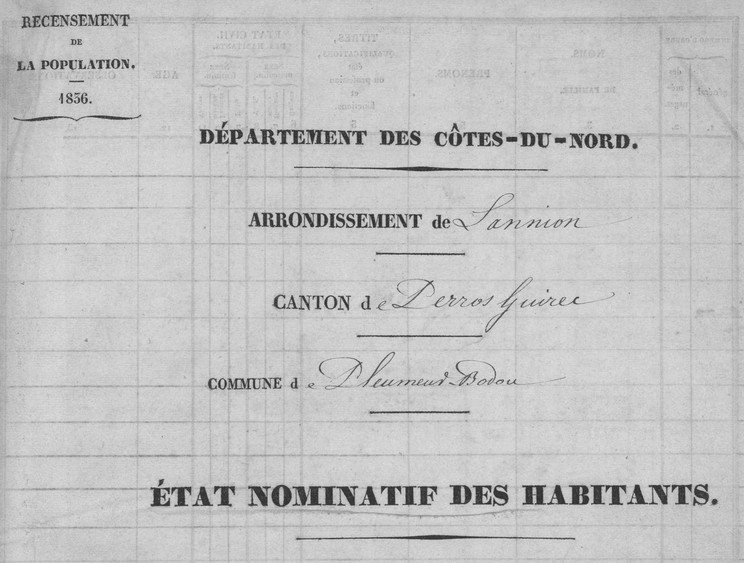 RECENSEMENT
DE
LA POPULATION.
1836.
DÉPARTEMENT DES CÔTES-DU-NORD.
ARRONDISSEMENT de Lannion
CANTON de Perros Guirec
COMMUNE de Pleumeur-Bodou
ÉTAT NOMINATIF DES HABITANTS.